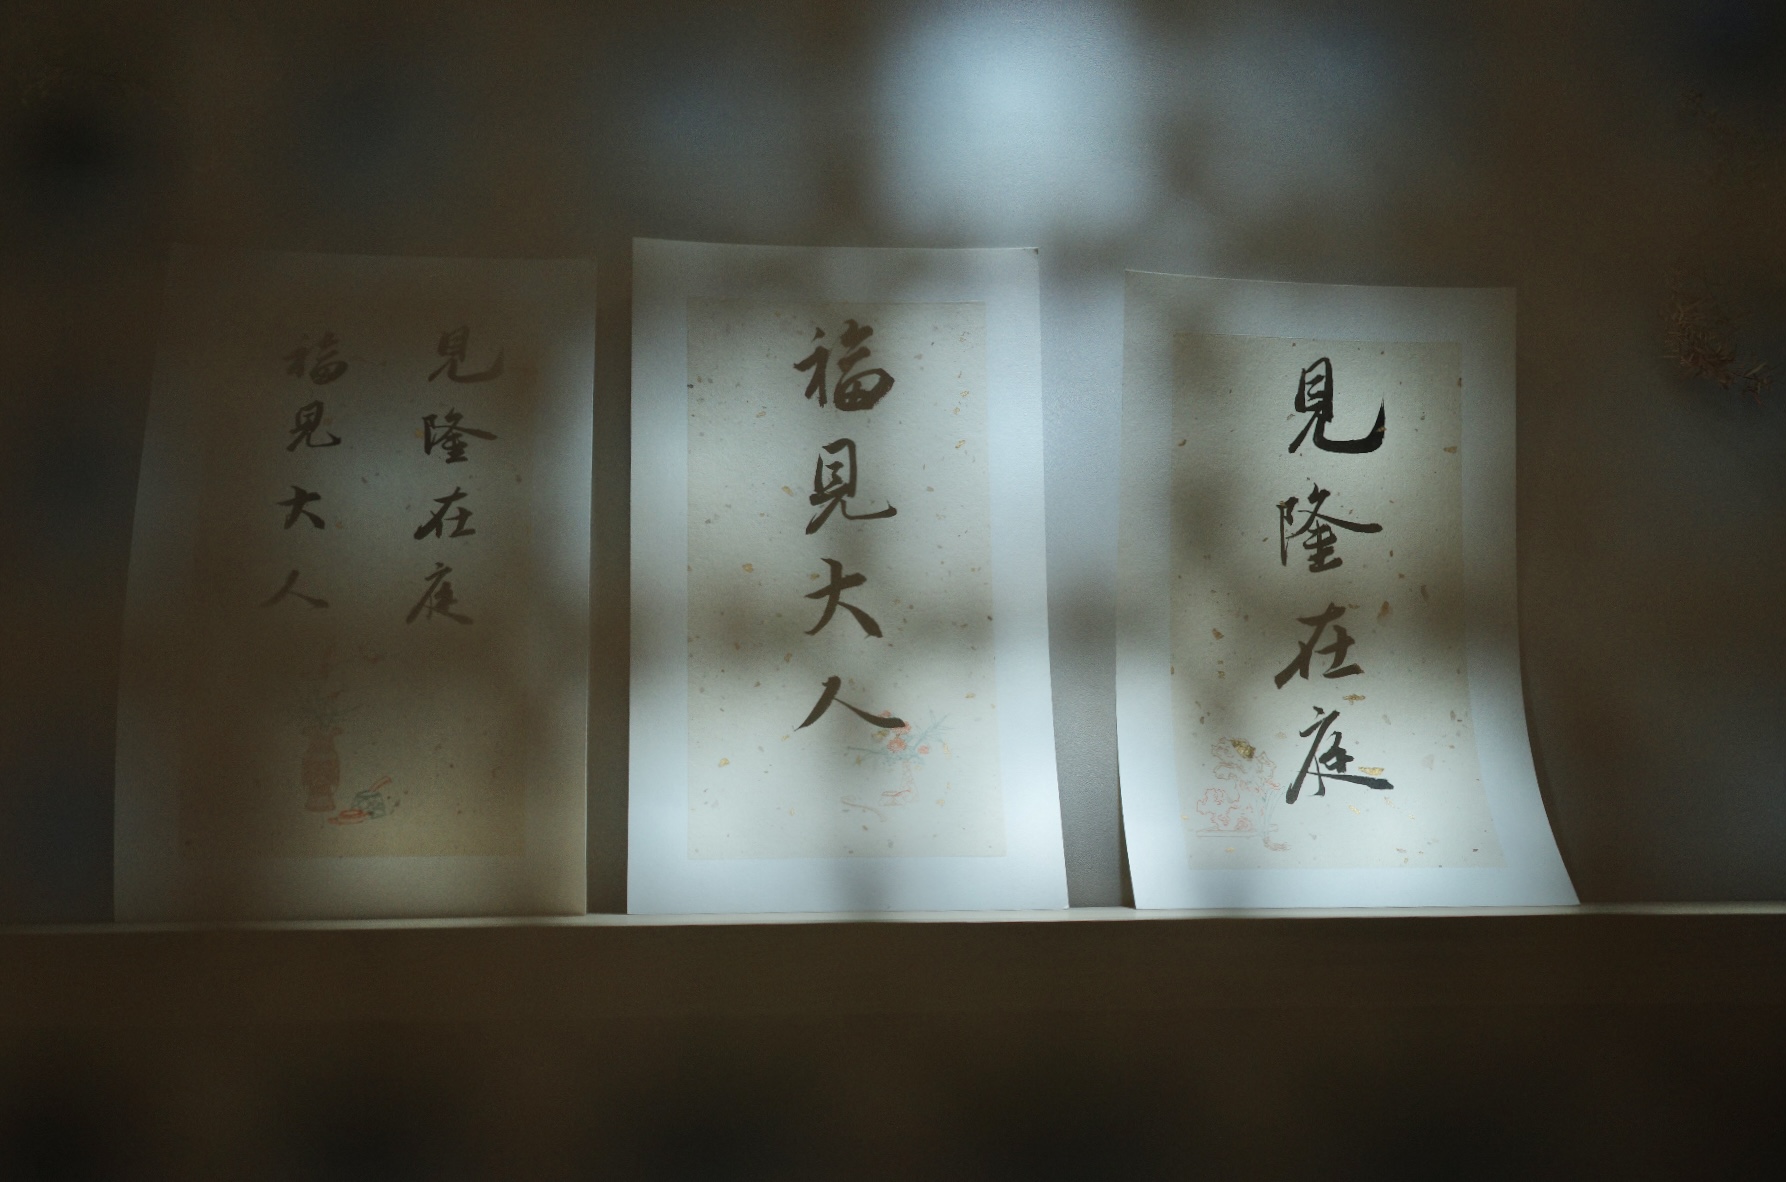 見隆在庭
福見大人
見隆在庭
福見大人